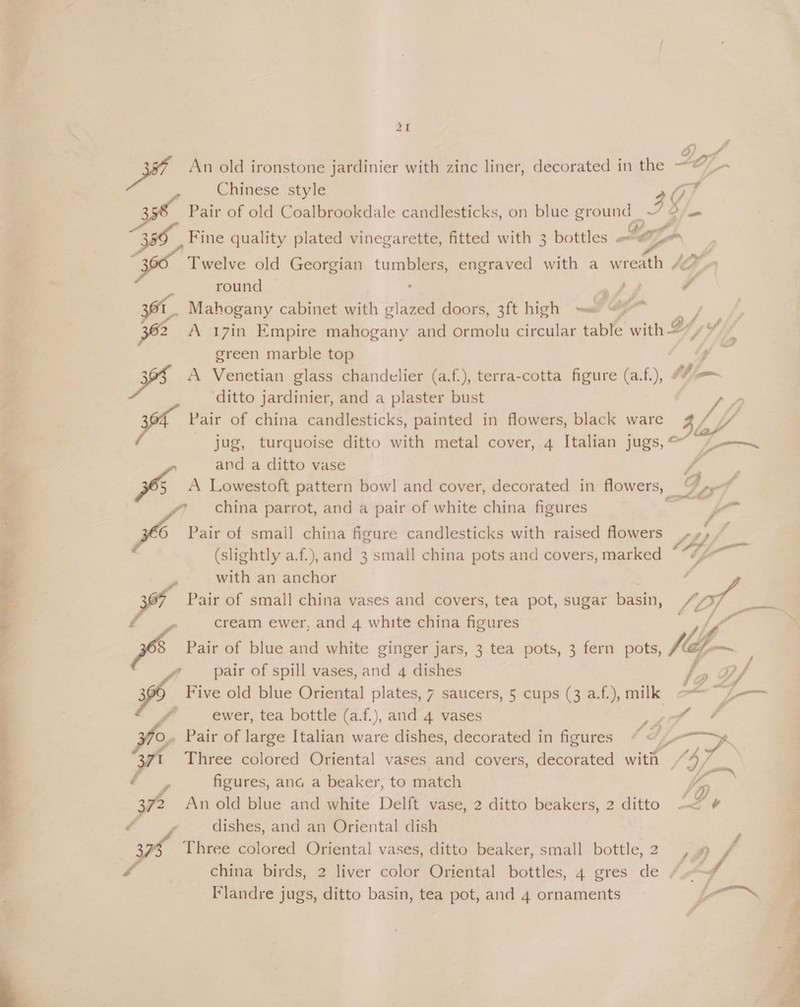 21
357 An old ironstone jardinier with zinc liner, decorated in the
Chinese style
358 Pair of old Coalbrookdale candlesticks, on blue ground
359 Fine quality plated vinegarette, fitted with 3 bottles
360 Twelve old Georgian tumblers, engraved with a wreath
round
361 Mahogany cabinet with glazed doors, 3ft high
362 A 17in Empire mahogany and ormolu circular table with
green marble top
363 A Venetian glass chandelier (a.f.), terra-cotta figure (a.f.),
ditto jardinier, and a plaster bust
364 Pair of china candlesticks, painted in flowers, black ware
jug, turquoise ditto with metal cover, 4 Italian jugs,
and a ditto vase
365 A Lowestoft pattern bowl and cover, decorated in flowers,
china parrot, and a pair of white china figures
366 Pair of small china figure candlesticks with raised flowers
(slightly a.f.), and 3 small china pots and covers, marked
with an anchor
367 Pair of small china vases and covers, tea pot, sugar basin,
cream ewer, and 4 white china figures
368 Pair of blue and white ginger jars, 3 tea pots, 3 fern pots,
pair of spill vases, and 4 dishes
369 Five old blue Oriental plates, 7 saucers, 5 cups (3 a.f.), milk
ewer, tea bottle (a.f.), and 4 vases
370 Pair of large Italian ware dishes, decorated in figures
371 Three colored Oriental vases and covers, decorated with
figures, and a beaker, to match
372 An old blue and white Delft vase, 2 ditto beakers, 2 ditto
dishes, and an Oriental dish
373 Three colored Oriental vases, ditto beaker, small bottle, 2
china birds, 2 liver color Oriental bottles, 4 gres de
Flandre jugs, ditto basin, tea pot, and 4 ornaments